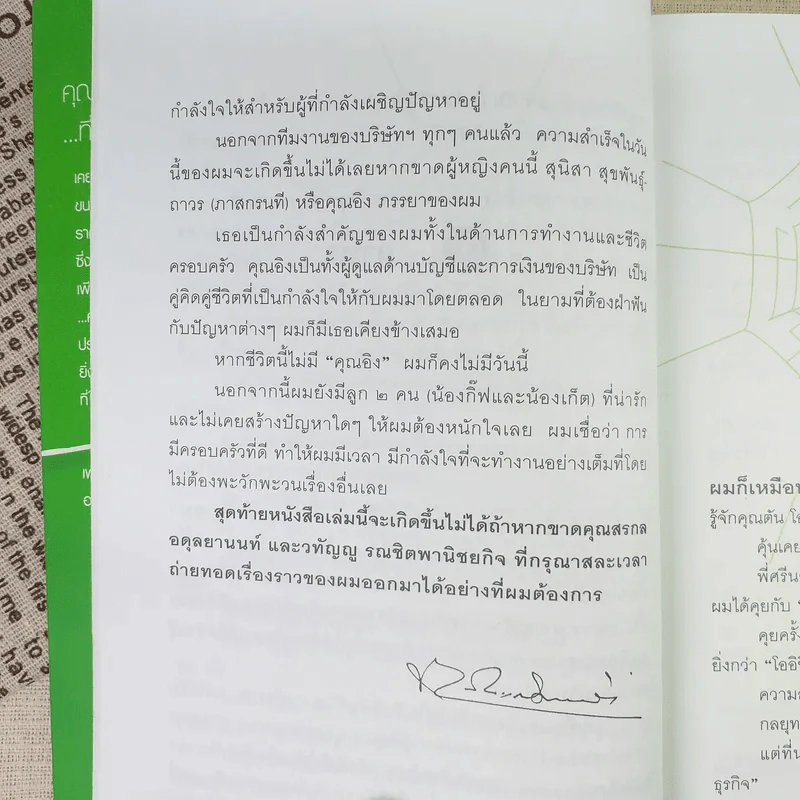 กำลังใจให้สำหรับผู้ที่กำลังเผชิญปัญหาอยู่
นอกจากทีมงานของบริษัทฯ ทุกๆ คนแล้ว ความสำเร็จในวัน
นี้ของผมจะเกิดขึ้นไม่ได้เลยหากขาดผู้หญิงคนนี้ สุนิสา สุขพันธุ์-
ถาวร (ภาสกรนที) หรือคุณอิง ภรรยาของผม
เธอเป็นกำลังสำคัญของผมทั้งในด้านการทำงานและชีวิต
ครอบครัว คุณอิงเป็นทั้งผู้ดูแลด้านบัญชีและการเงินของบริษัท เป็น
คู่คิดคู่ชีวิตที่เป็นกำลังใจให้กับผมมาโดยตลอด ในยามที่ต้องฝ่าฟัน
กับปัญหาต่างๆ ผมก็มีเธอเคียงข้างเสมอ
หากชีวิตนี้ไม่มี “คุณอิง” ผมก็คงไม่มีวันนี้
นอกจากนี้ผมยังมีลูก ๒ คน (น้องกิ๊ฟและน้องเก็ต) ที่น่ารัก
และไม่เคยสร้างปัญหาใดๆ ให้ผมต้องหนักใจเลย ผมเชื่อว่า การ
มีครอบครัวที่ดี ทำให้ผมมีเวลา มีกำลังใจที่จะทำงานอย่างเต็มที่โดย
ไม่ต้องพะวักพะวนเรื่องอื่นเลย
สุดท้ายหนังสือเล่มนี้จะเกิดขึ้นไม่ได้ถ้าหากขาดคุณสรกล
อดุลยานนท์ และวทัญญู รณชิตพานิชยกิจ ที่กรุณาสละเวลา
ถ่ายทอดเรื่องราวของผมออกมาได้อย่างที่ผมต้องการ
ผมก็เหมือน
รู้จักคุณตัน
คุ้นเคย
ผมได้คุยกับ
คุยครั้ง
ยิ่งกว่า
ธุรกิจ”